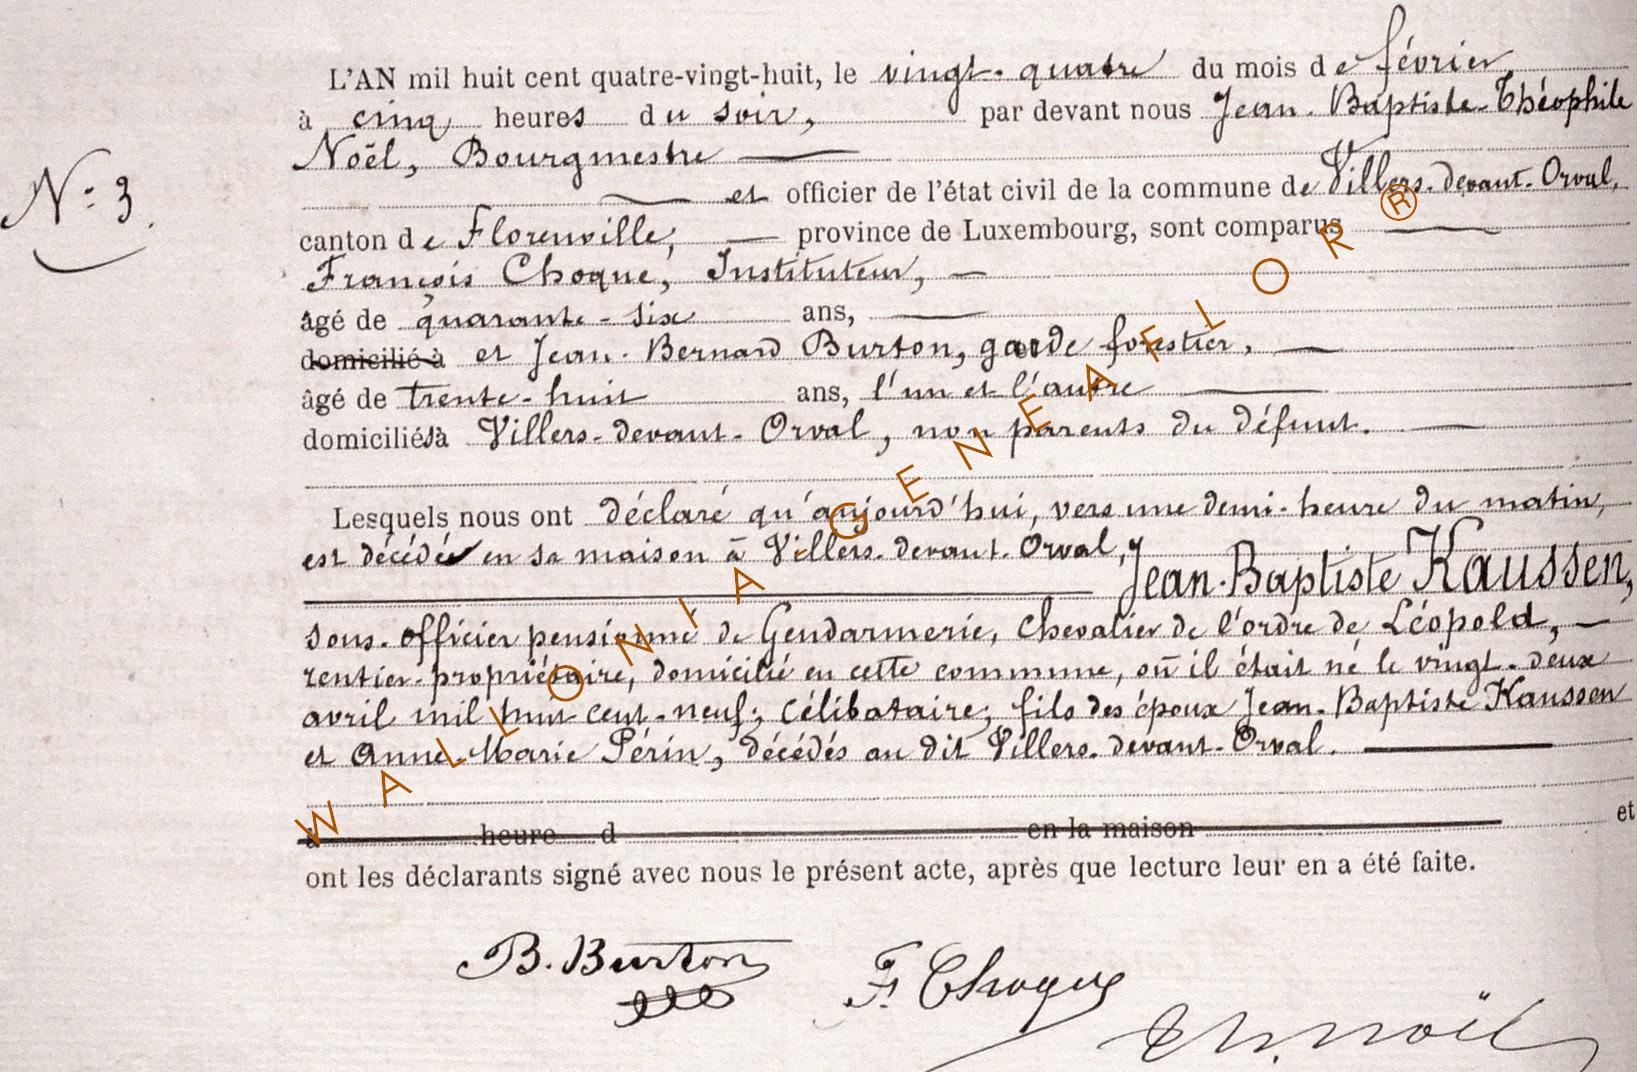 L'AN mil huit cent quatre-vingt-huit, le vingt-quatre du mois de février,
à cinq heures du soir, par devant nous Jean-Baptiste-Théophile
Noël, Bourgmestre
N: 3.
et officier de l'état civil de la commune de Villers-devant-Orval,
canton de Florenville, province de Luxembourg, sont comparus
François Choque, Instituteur,
âgé de quarante-six ans,
domicilié à et Jean-Bernard Burton, garde forestier,
âgé de trente-huit ans, l'un et l'autre
domiciliés à Villers-devant-Orval, non parents du défunt.
Lesquels nous ont déclaré qu'aujourd'hui, vers une demi-heure du matin,
est décédé en sa maison à Villers-devant-Orval,
Jean-Baptiste Kaussen,
sous-officier pensionné de Gendarmerie, Chevalier de l'ordre de Léopold,
rentier-propriétaire, domicilié en cette commune, où il était né le vingt-deux
avril mil huit cent-neuf; célibataire; fils des époux Jean-Baptiste Kaussen
et Anne-Marie Périn, décédés au dit Villers-devant-Orval.
à heure d en la maison et
ont les déclarants signé avec nous le présent acte, après que lecture leur en a été faite.
B. Burton
F. Choque
Th. Noël
WALLONIA-GENEAFLOR®